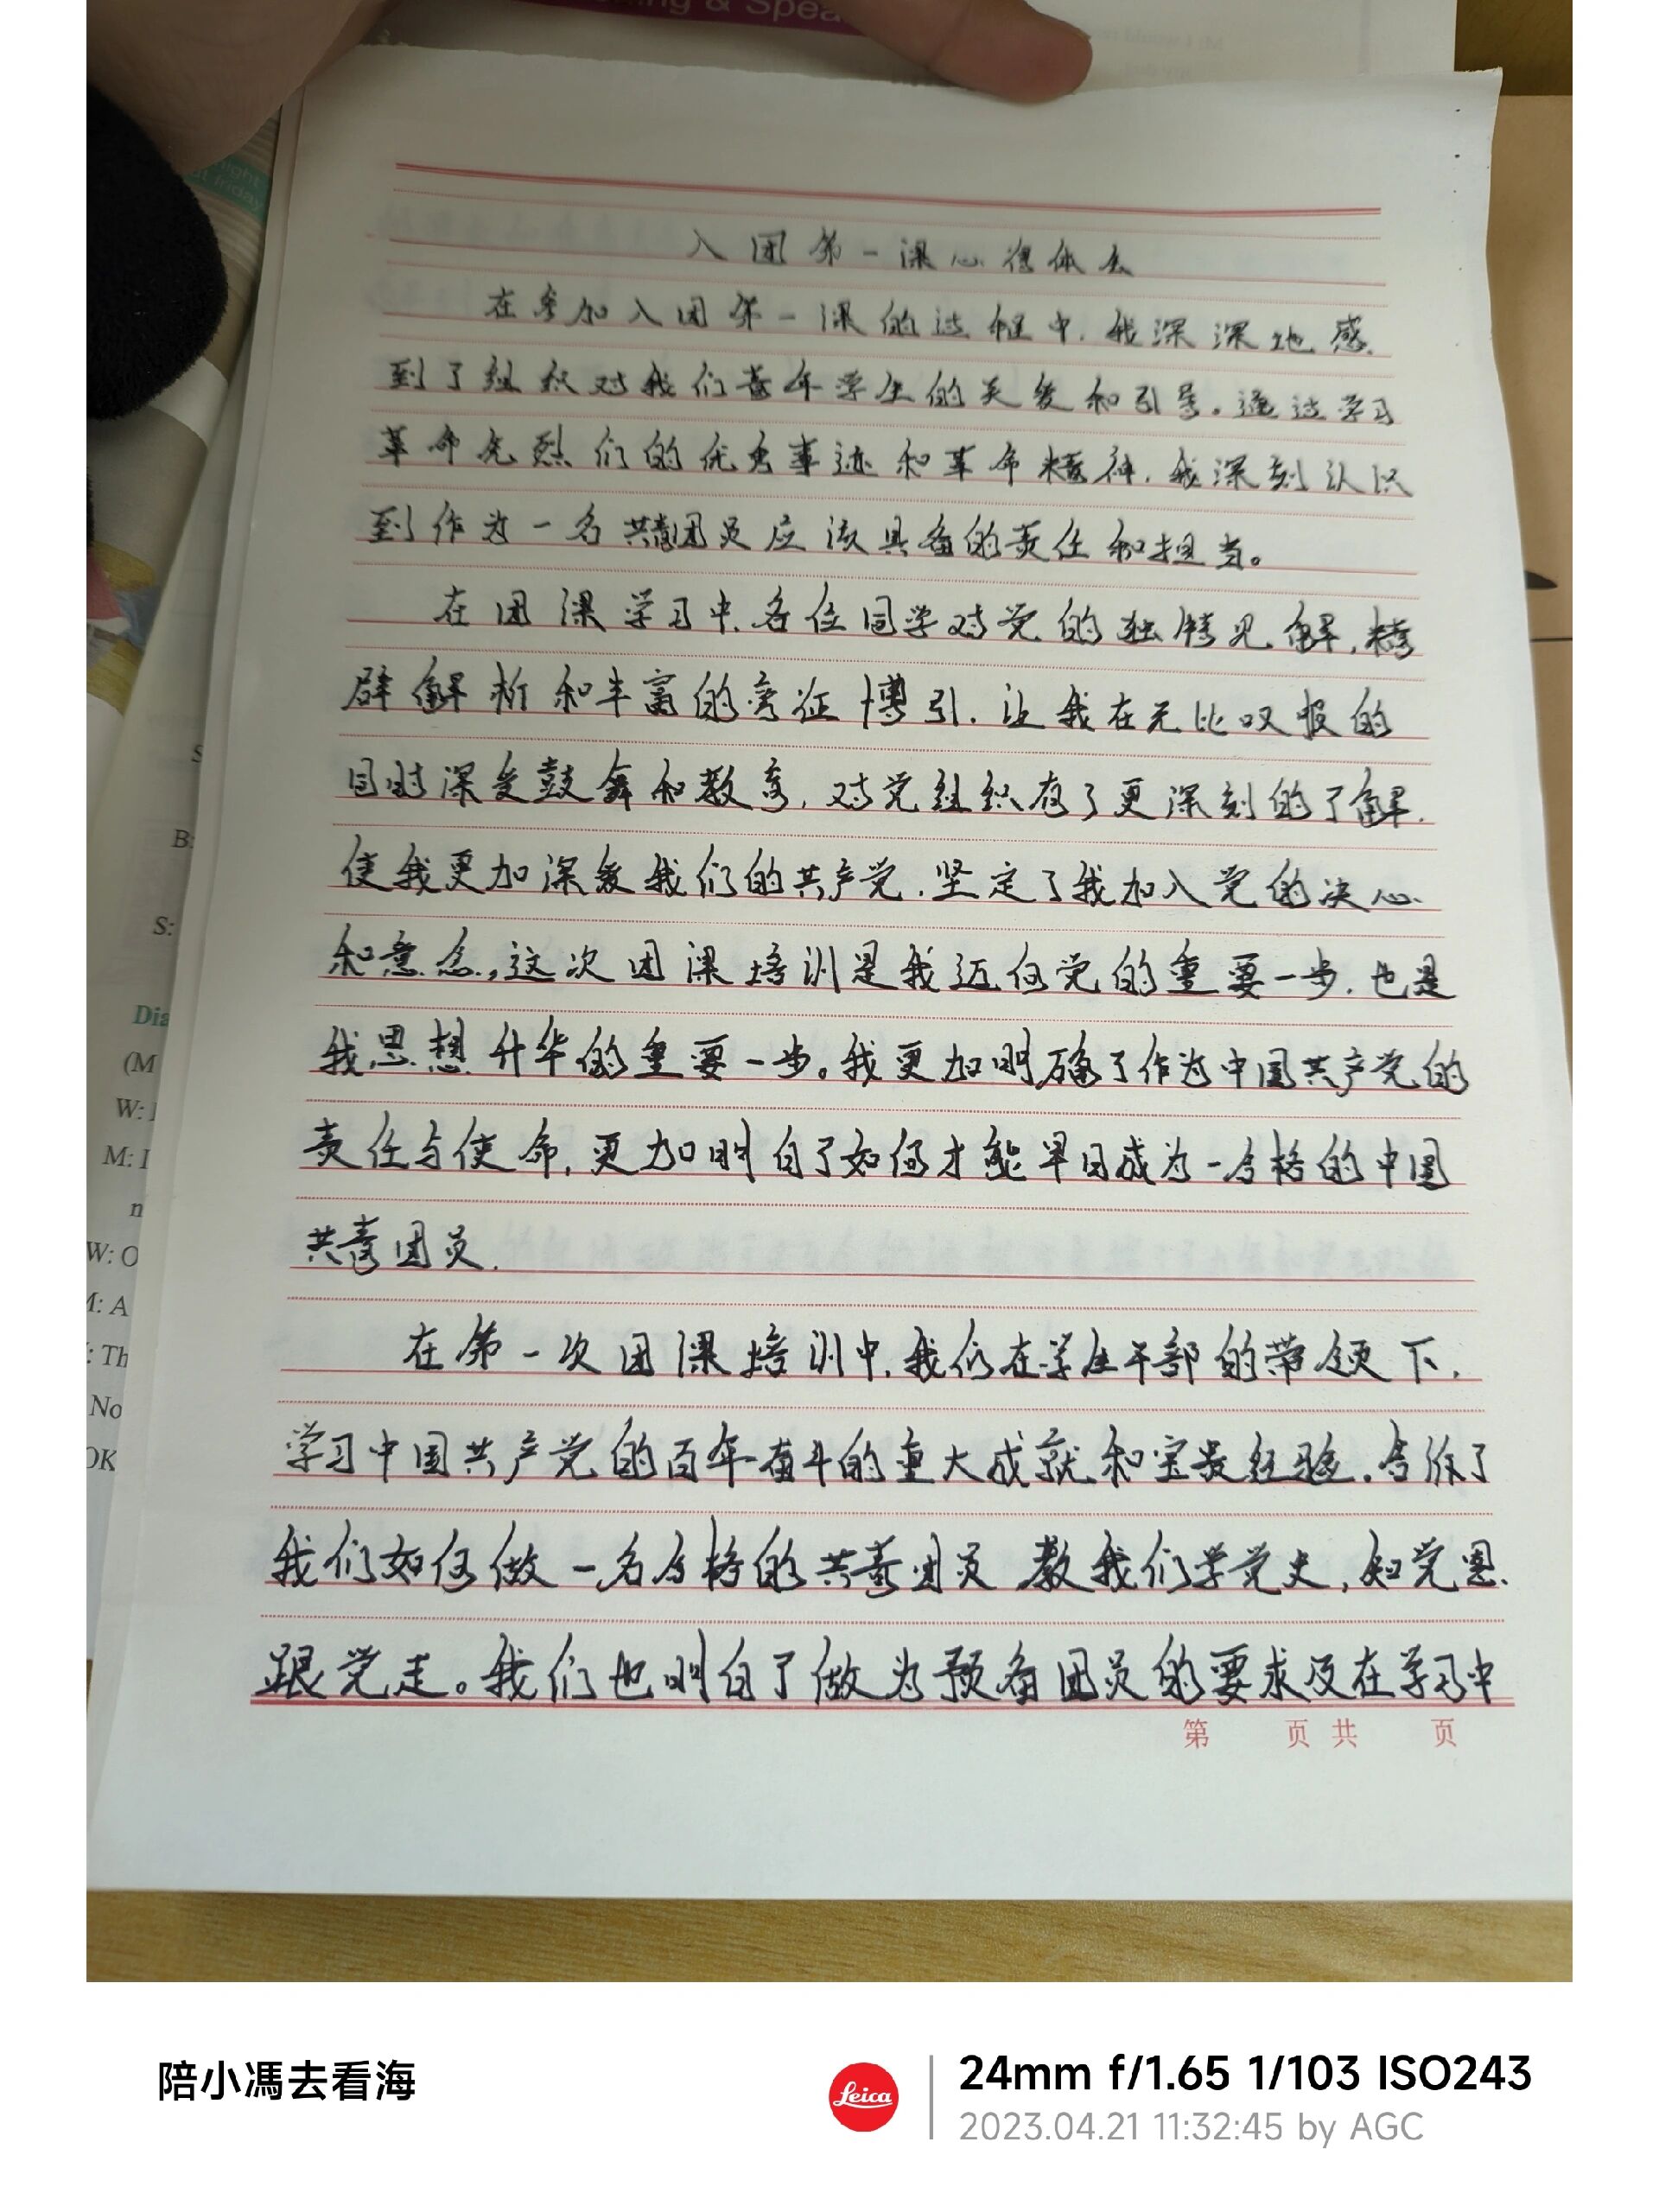 ing & Spea
入团第一课心得体会
在参加入团第一课的过程中,我深深地感
到了组织对我们青年学生的关爱和引导。通过学习
革命先烈们的优秀事迹和革命精神,我深刻认识
到作为一名共青团员应该具备的责任和担当。
在团课学习中,各位同学对党的独特见解,精
辟解析和丰富的旁征博引,让我在无比叹服的
同时深受鼓舞和教育,对党组织有了更深刻的了解,
使我更加深爱我们的共产党,坚定了我加入党的决心
和意念,这次团课培训是我迈向党的重要一步,也是
我思想升华的重要一步。我更加明确了作为中国共产党的
责任与使命,更加明白了如何才能早日成为一合格的中国
共青团员.
在第一次团课培训中,我们在学生干部的带领下,
学习中国共产党的百年奋斗的重大成就和宝贵经验,告你了
我们如何做一名合格的共青团员,教我们学党史,知党恩,
跟党走。我们也明白了做为预备团员的要求及在学习中
第 页 共 页
B:
S:
Dia
(M
W: I
M: I
n
W: O
M: A
: Th
No
OK
陪小馮去看海
Leica
24mm f/1.65 1/103 ISO243
2023.04.21 11:32:45 by AGC